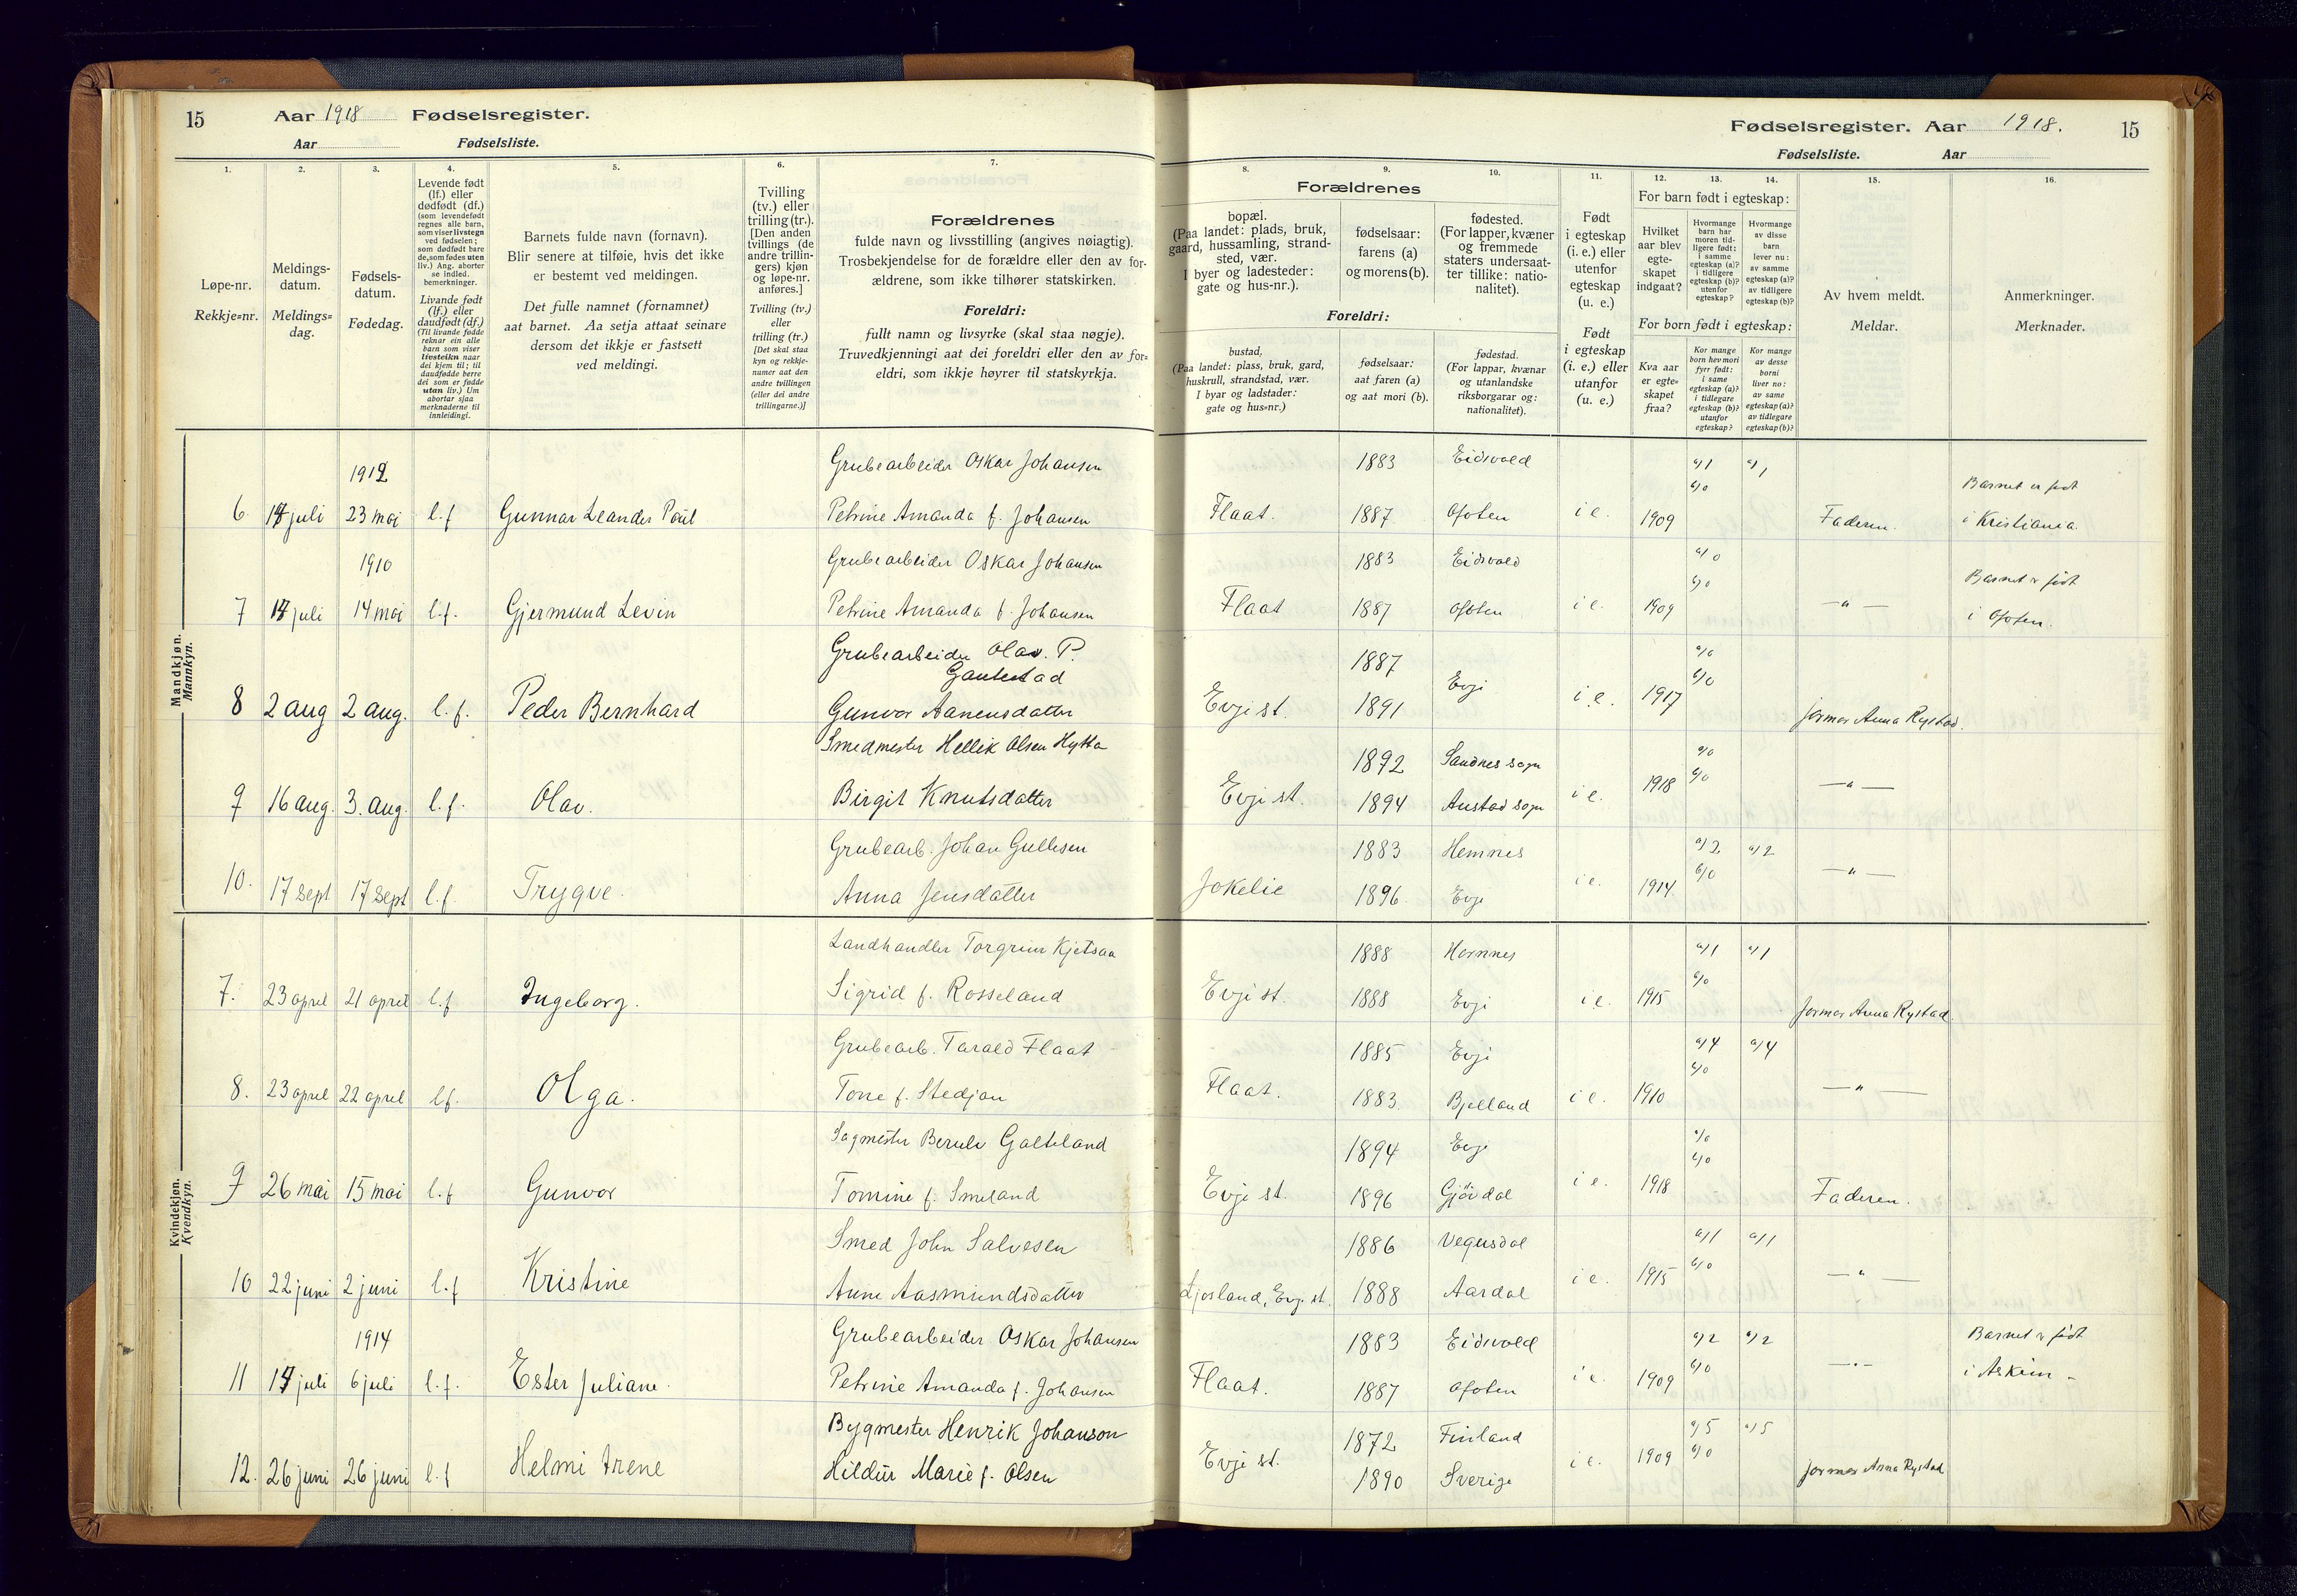 15 Aar 1918 Fødselsregister.
Aar Fødselsliste.
1. 2. 3. 4. 5. 6. 7.
Løpe-nr.
Rekkje=nr.
Meldings-
datum.
Meldings=
dag.
Fødsels-
datum.
Fødedag.
Levende født
(lf.) eller
dødfødt (df.)
(som levendefødt
regnes alle barn,
som viser livstegn
ved fødselen;
som dødfødt bare
de, som fødes uten
liv.) Ang. aborter
se indled.
bemerkninger.
Livande født
(lf.) eller
daudfødt (df.)
(Til livande fødde
reknar ein alle
barn som viser
livsteikn naar
dei kjem til; til
daudfødde berre
dei som er fødde
utan liv.) Um
abortar sjaa
merknaderne til
innleidingi.
Barnets fulde navn (fornavn).
Blir senere at tilføie, hvis det ikke
er bestemt ved meldingen.
Det fulle namnet (fornamnet)
aat barnet. Aa setja attaat seinare
dersom det ikkje er fastsett
ved meldingi.
Tvilling
(tv.) eller
trilling (tr.).
[Den anden
tvillings (de
andre trillin-
gers) kjøn
og løpe-nr.
anføres.]
Tvilling (tv.)
eller
trilling (tr.)
[Det skal staa
kyn og rekkje-
numer aat den
andre tvillingen
(eller dei andre
trillingarne.)]
Forældrenes
fulde navn og livsstilling (angives nøiagtig).
Trosbekjendelse for de forældre eller den av for-
ældrene, som ikke tilhører statskirken.
Foreldri:
fullt namn og livsyrke (skal staa nøgje).
Truvedkjenningi aat dei foreldri eller den av for=
eldri, som ikkje høyrer til statskyrkja.
Mandkjøn.
Mannkyn.
1912 Grubearbeider Oskar Johansen
6. 17 juli 23 mai l.f Gunnar Leander Paul Petrine Amanda f. Johansen
1910 Grubearbeider Oskar Johansen
7 17 juli 14 mai l.f. Gjermund Levin Petrine Amanda f. Johansen
Grubearbeider Olav. P.
Gautestad
8 2 aug 2 aug. l.f. Peder Bernhard Gunvor Aanensdatter
Smedmester Hellik Olsen Hytta
9 16 aug. 3. aug. l.f. Olav. Birgit Knutsdatter
Grubearb. Johan Gullesen
10. 17 sept 17 sept l.f. Trygve. Anna Jensdatter
Kvindekjøn.
Kvendkyn.
Landhandler Torgrim Kjetsaa
7. 23 april 21 april l.f Ingeborg. Sigrid f. Rosseland
Grubearb. Tarald Flaat
8. 23 april 22 april lf. Olga. Tone f. Stedjan
Sagmester Berule Galteland
9 26 mai 15 mai l.f Gunvor Tomine f. Smeland
Smed John Salvesen
10 22 juni 2 juni l.f Kristine Anne Aasmundsdatter
1914 Grubearbeider Oskar Johansen
11 17 juli 6 juli l.f. Ester Juliane. Petrine Amanda f. Johansen
Bygmester Henrik Johanson
12. 26 juni 26 juni l.f Helmi Irene Hildur Marie f. Olsen
Fødselsregister. Aar 1918. 15
Fødselsliste. Aar
8. 9. 10. 11. 12. 13. 14. 15. 16.
Forældrenes
bopæl.
(Paa landet: plads, bruk,
gaard, hussamling, strand-
sted, vær.
I byer og ladesteder:
gate og hus-nr.).
fødselsaar:
farens (a)
og morens (b).
fødested.
(For lapper, kvæner
og fremmede
staters undersaat-
ter tillike: natio-
nalitet).
Foreldri:
bustad,
(Paa landet: plass, bruk, gard,
huskrull, strandstad, vær.
I byar og ladstader:
gate og hus=nr.)
fødselsaar:
aat faren (a)
og aat mori (b).
fødestad.
(For lappar, kvænar
og utanlandske
riksborgarar og:
nationalitet).
Født
i egteskap
(i. e.) eller
utenfor
egteskap
(u. e.)
Født
i egteskap
(i. e.) eller
utanfor
(u. e.)
For barn født i egteskap:
Hvilket
aar blev
egte-
skapet
indgaat?
Hvormange
barn har
moren tid-
ligere født:
i samme
egteskap (a)?
i tidligere
egteskap (b)?
utenfor
egteskap?
Hvormange
av disse
barn
lever nu:
av samme
egteskap (a)?
av tidligere
egteskap (b)?
For born født i egteskap:
Kva aar
er egte=
skapet
fraa?
Kor mange
born hev mori
fyrr født:
i same
egteskap (a)?
i tidlegare
egteskap (b)?
utanfor
egteskap?
Kor mange
av desse
borni
liver no:
av same
egteskap (a)?
av tidlegare
egteskap (b)?
Av hvem meldt.
Meldar.
Anmerkninger.
Merknader.
1883 Eidsvold a/1 a/1
b/0 Barnet er født
Flaat. 1887 Ofoten i e. 1909 Faderen. i Kristiania.
1883 Eidsvold a/0
b/0 Barnet er født
Flaat 1887 Ofoten i e. 1909 —"— i Ofoten.
1887 a/0
Evje b/0
Evje st. 1891 i e. 1917 Jormor Anna Rystad.
1892 Sandnes sogn a/0
Evje st. 1894 Austad sogn i e. 1918 b/0 —"—
1883 Hemnes a/2 a/2
Jokelie 1896. Evje i e. 1914 b/0 —"—
1888 Hornnes a/1 a/1
Evje st. 1888 Evje i e. 1915 b/0 Jormor Anna Rystad.
1885 Evje a/4 a/4
Flaat. 1883. Bjelland i e. 1910 b/0 —"—
1894 Evje a/0
Evje st. 1896 Gjövdal i e. 1918 b/0 Faderen.
1886 Vegusdal a/1 a/1
Ljosland, Evje st. 1888 Aardal i e. 1915 b/0 —"—
1883 Eidsvold a/2 a/2 Barnet er født
Flaat. 1887 Ofoten i e. 1909 b/0 —"— i Askim -
1872 Finland a/5 a/5
Evje st. 1890 Sverige i e. 1909 b/0 Jormor Anna Rystad